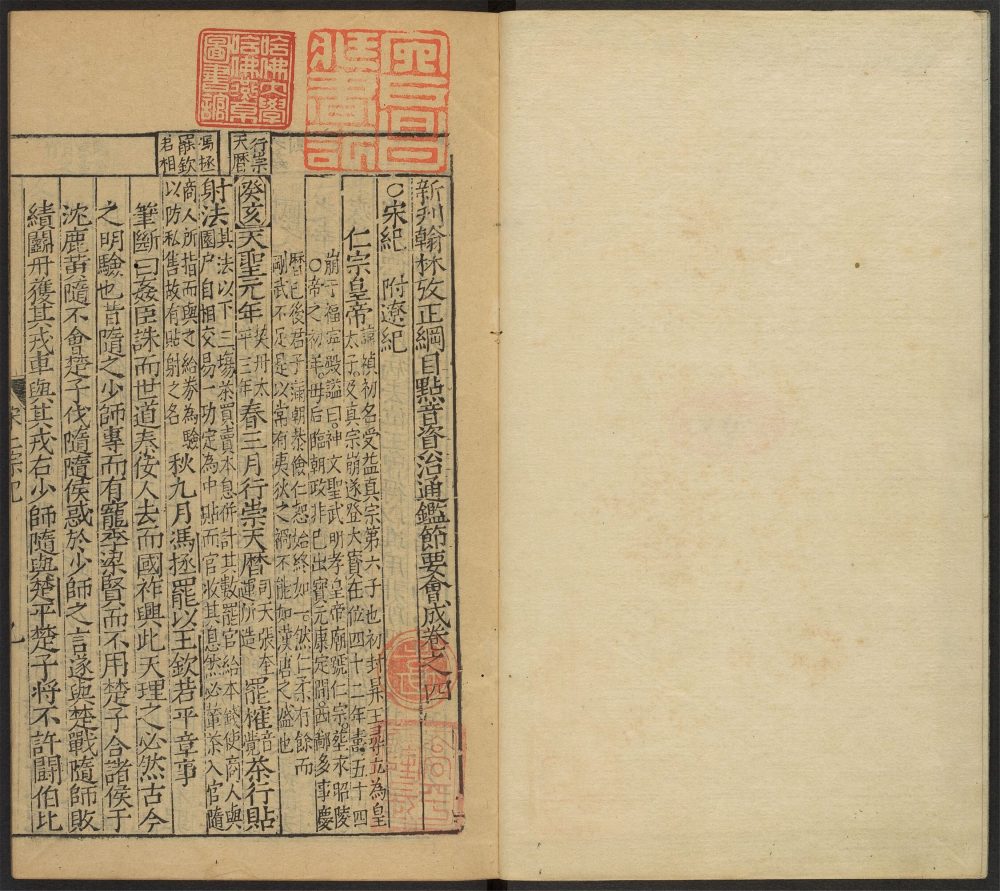 哈佛大學
哈佛燕京
圖書館
新刋翰林攷正綱目點音資治通鑑節要會成卷之四
○宋紀 附遼紀
仁宗皇帝 諱禎初名受益真宗第六子也初封昇王尋立為皇
太子及真宗崩遂登大寶在位四十二年壽五十四
崩于福寧殿謚曰神文聖武明孝皇帝廟號仁宗塟永昭陵
○帝之初年毋后臨朝政非巳出寶元康定間西鄙多事慶
曆已後君子滿朝恭儉仁恕始終如一然仁柔有餘而
剛武不足是以常有夷狄之禍不能如漢唐之盛也
行崇
天曆
癸亥天聖元年 契丹太平三年 春三月行崇天曆 司天張奎運所造 罷榷 音覺 茶行貼
射法 其法以十三塲茶買賣本息併計其數罷官給本錢使商人與
園户自相交易一功定為中貼而官收其息然必輦茶入官隨
馮拯
罷欽
若相
商人所指而與之給券為驗
以防私售故有貼射之名 秋九月馮拯罷以王欽若平章事
筆斷曰姦臣誅而世道泰佞人去而國祚興此天理之必然古今
之明驗也昔隨之少師專而有寵季梁賢而不用楚子合諸侯于
沈鹿黃隨不會楚子伐隨隨侯惑於少師之言遂與楚戰隨師敗
績鬬丹獲其戎車與其戎右少師隨與楚平楚子將不許鬬伯比